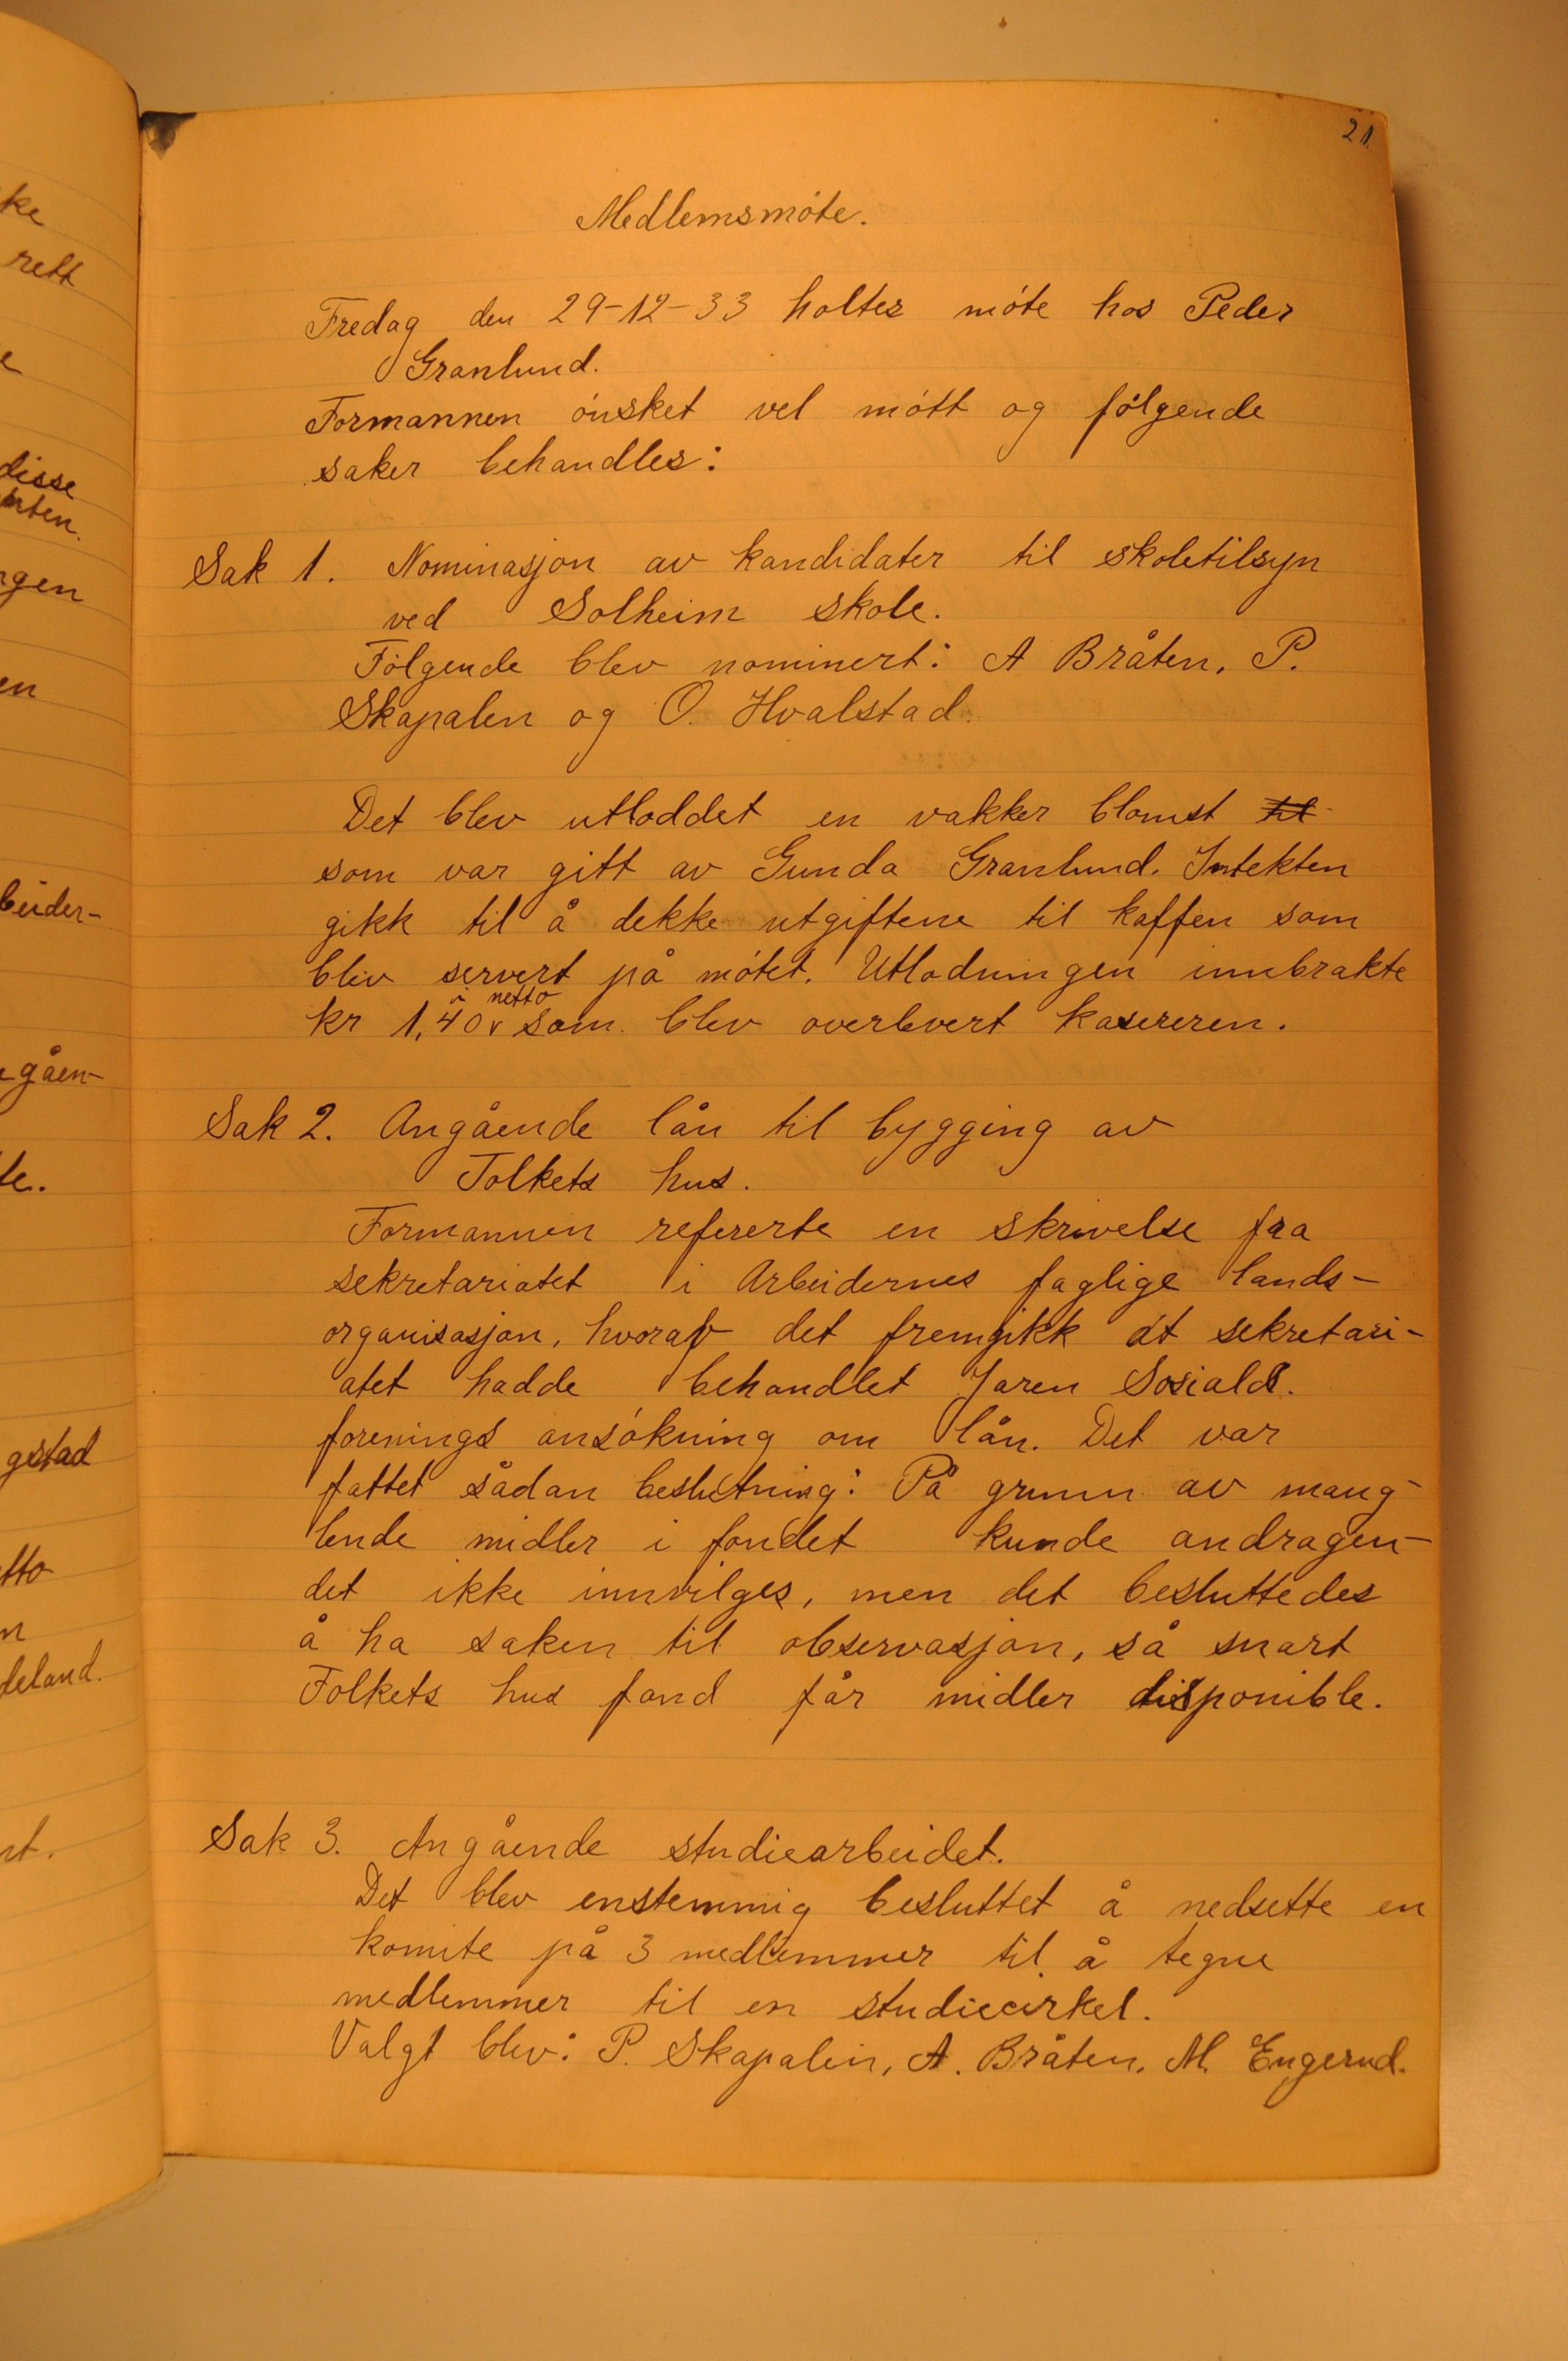 21.
Medlemsmöte.
Fredag den 29-12-33 holtes möte hos Peder
Granlund.
Formannen önsket vel mött og fölgende
saker behandles:
Sak 1. Nominasjon av kandidater til skoletilsyn
ved Solheim skole.
Fölgende blev nominert: A Bråten, P.
Skapalen og O. Hvalstad.
Det blev utloddet en vakker blomst til
som var gitt av Gunda Granlund. Intekten
gikk til å dekke utgiftene til kaffen som
blev servert på mötet. Utlodningen innbrakte
netto
kr 1,40 som blev overlevert kasereren.
Sak 2. Angående lån til bygging av
Folkets hus.
Formannen refererte en skrivelse fra
sekretariatet i Arbeidernes faglige lands-
organisasjon, hvorav det fremgikk at sekretari-
atet hadde behandlet Jaren Sosiald.
forenings ansökning om lån. Det var
fattet sådan beslutning: På grunn av mang-
lende midler i fondet kunde andragen-
det ikke innvilges, men det besluttedes
å ha saken til observasjon, så snart
Folkets hus fond får midler disponible.
Sak 3. Angående studiearbeidet.
Det blev enstemmig besluttet å nedsette en
komite på 3 medlemmer til å tegne
medlemmer til en studiecirkel.
Valgt blev: P. Skapalen, A. Bråten, M. Engerud.
ke
rett
e
disse
rten.
rgen
en
beider-
gåen-
te.
gstad
tto
n
deland.